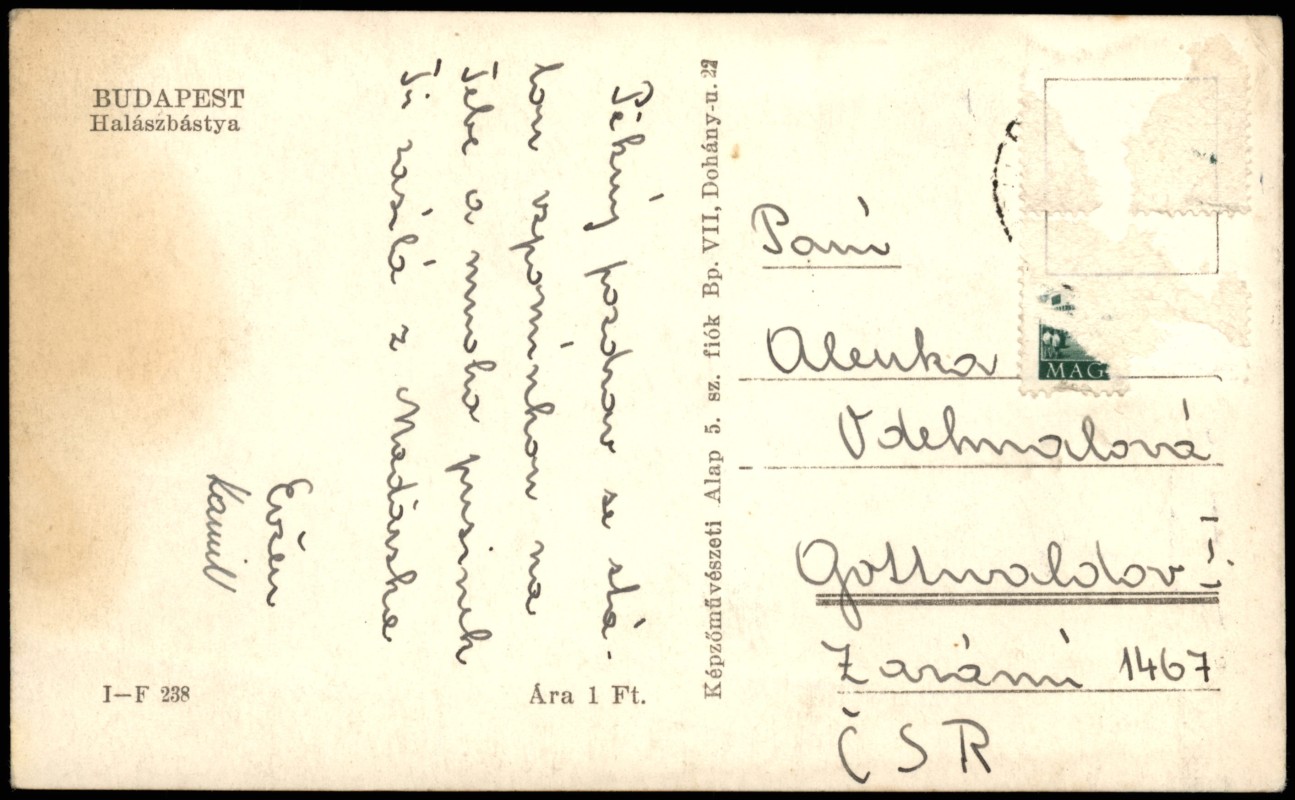 BUDAPEST
Halászbástya
Pěkný pozdrav se stá-
lou vzpomínkou na
Tebe a mnoho pusinek
Ti zasílá z Maďarska
Evžen
Kamill
I—F 238
Ára 1 Ft.
Képzőművészeti Alap 5. sz. fiók Bp. VII, Dohány-u. 22
MAG
Paní
Alenka
Vdelmalová
Gottwaldov I
Zarámí 1467
ČSR